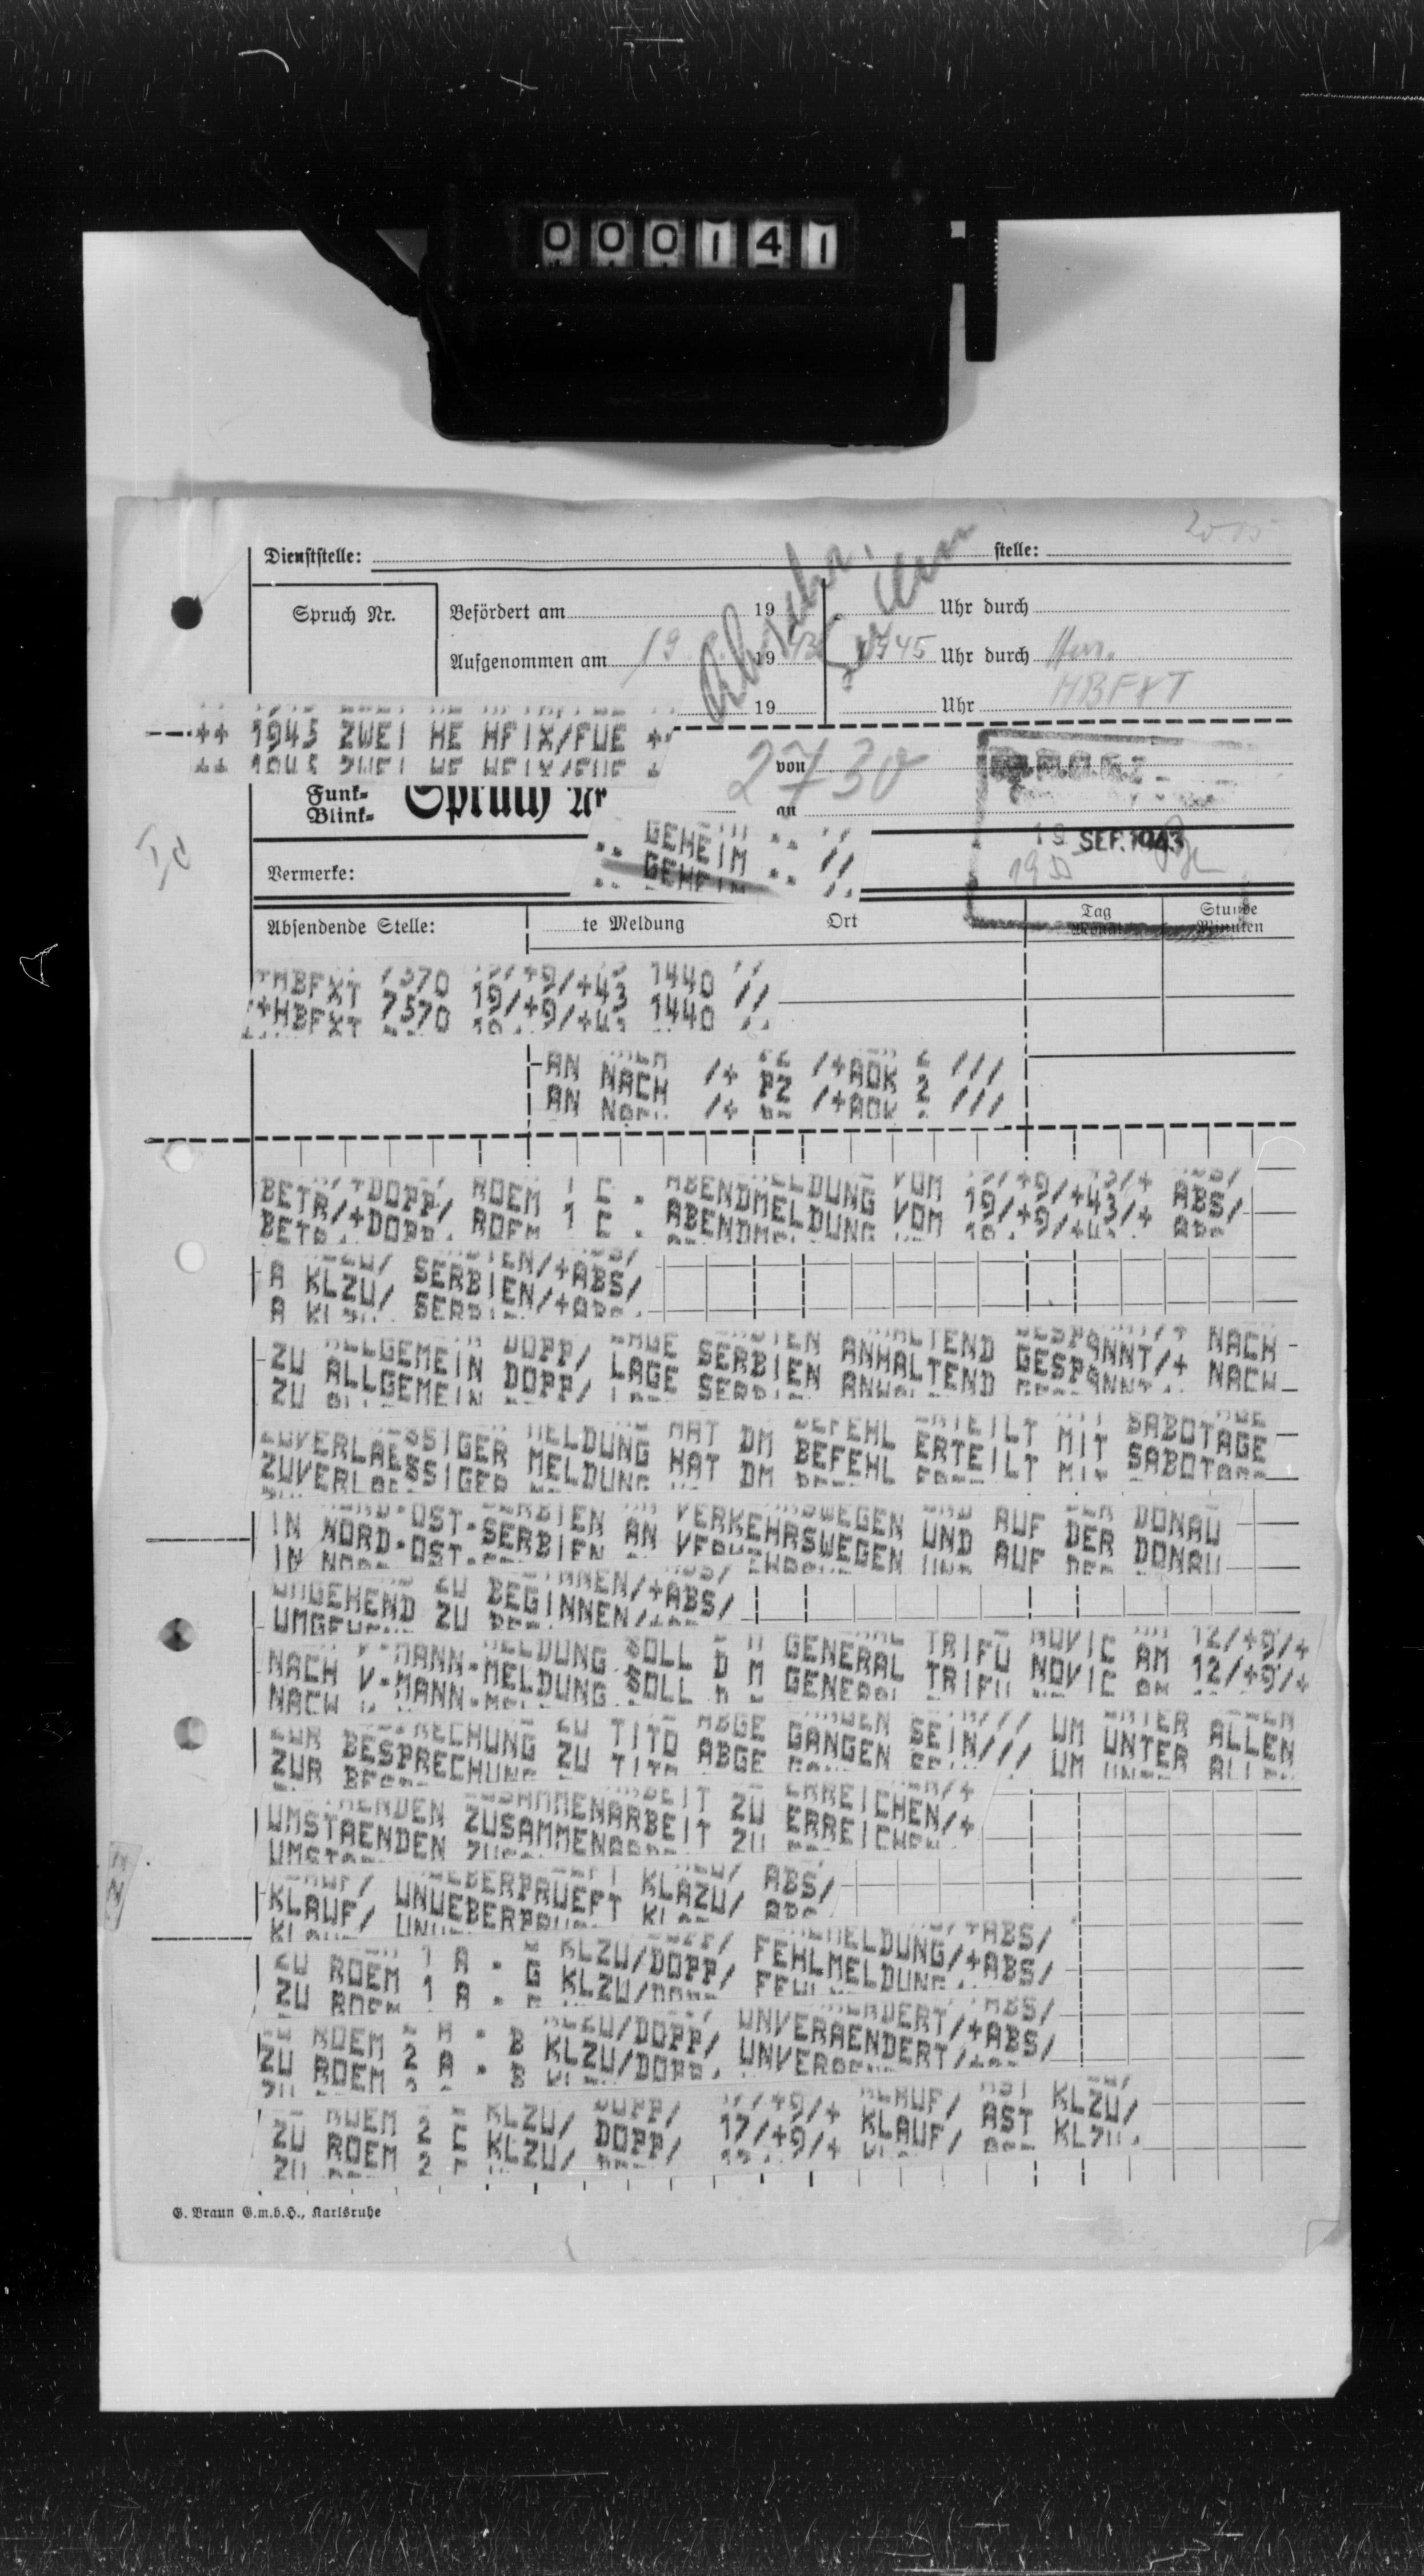 000141
20.15
Dienststelle: stelle:
Spruch Nr.
Befördert am 19 Uhr durch
Aufgenommen am 19. 19 1945 Uhr durch
19 Uhr HBFXT
++ 1945 ZWEI HE HFIX/FUE +
2730
von
Funk-
Blink-
Spruch Nr
an
.. GEHEIM .. //
19 SEP. 1943
Vermerke:
Absendende Stelle: te Meldung Ort Tag Monat Stunde Minuten
/+HBFXT 7570 19/+9/+43 1440 //
AN NACH /+ PZ /+AOK 2 ///
BETR/+DOPP/ ROEM 1 C - ABENDMELDUNG VOM 19/+9/+43/+ ABS/
A KLZU/ SERBIEN/+ABS/
ZU ALLGEMEIN DOPP/ LAGE SERBIEN ANHALTEND GESPANNT/+ NACH
ZUVERLAESSIGER MELDUNG HAT DM BEFEHL ERTEILT MIT SABOTAGE
IN NORD-OST-SERBIEN AN VERKEHRSWEGEN UND AUF DER DONAU
UMGEHEND ZU BEGINNEN/+ABS/
NACH V-MANN-MELDUNG SOLL D M GENERAL TRIFU NOVIC AM 12/+9/+
ZUR BESPRECHUNG ZU TITO ABGE GANGEN SEIN/// UM UNTER ALLEN
UMSTAENDEN ZUSAMMENARBEIT ZU ERREICHEN/+
KLAUF/ UNUEBERPRUEFT KLAZU/ ABS/
ZU ROEM 1 A - G KLZU/DOPP/ FEHLMELDUNG/+ABS/
ZU ROEM 2 A - B KLZU/DOPP/ UNVERAENDERT/+ABS/
ZU ROEM 2 C KLZU/ DOPP/ 17/+9/+ KLAUF/ AST KLZU/
G. Braun G.m.b.H., Karlsruhe